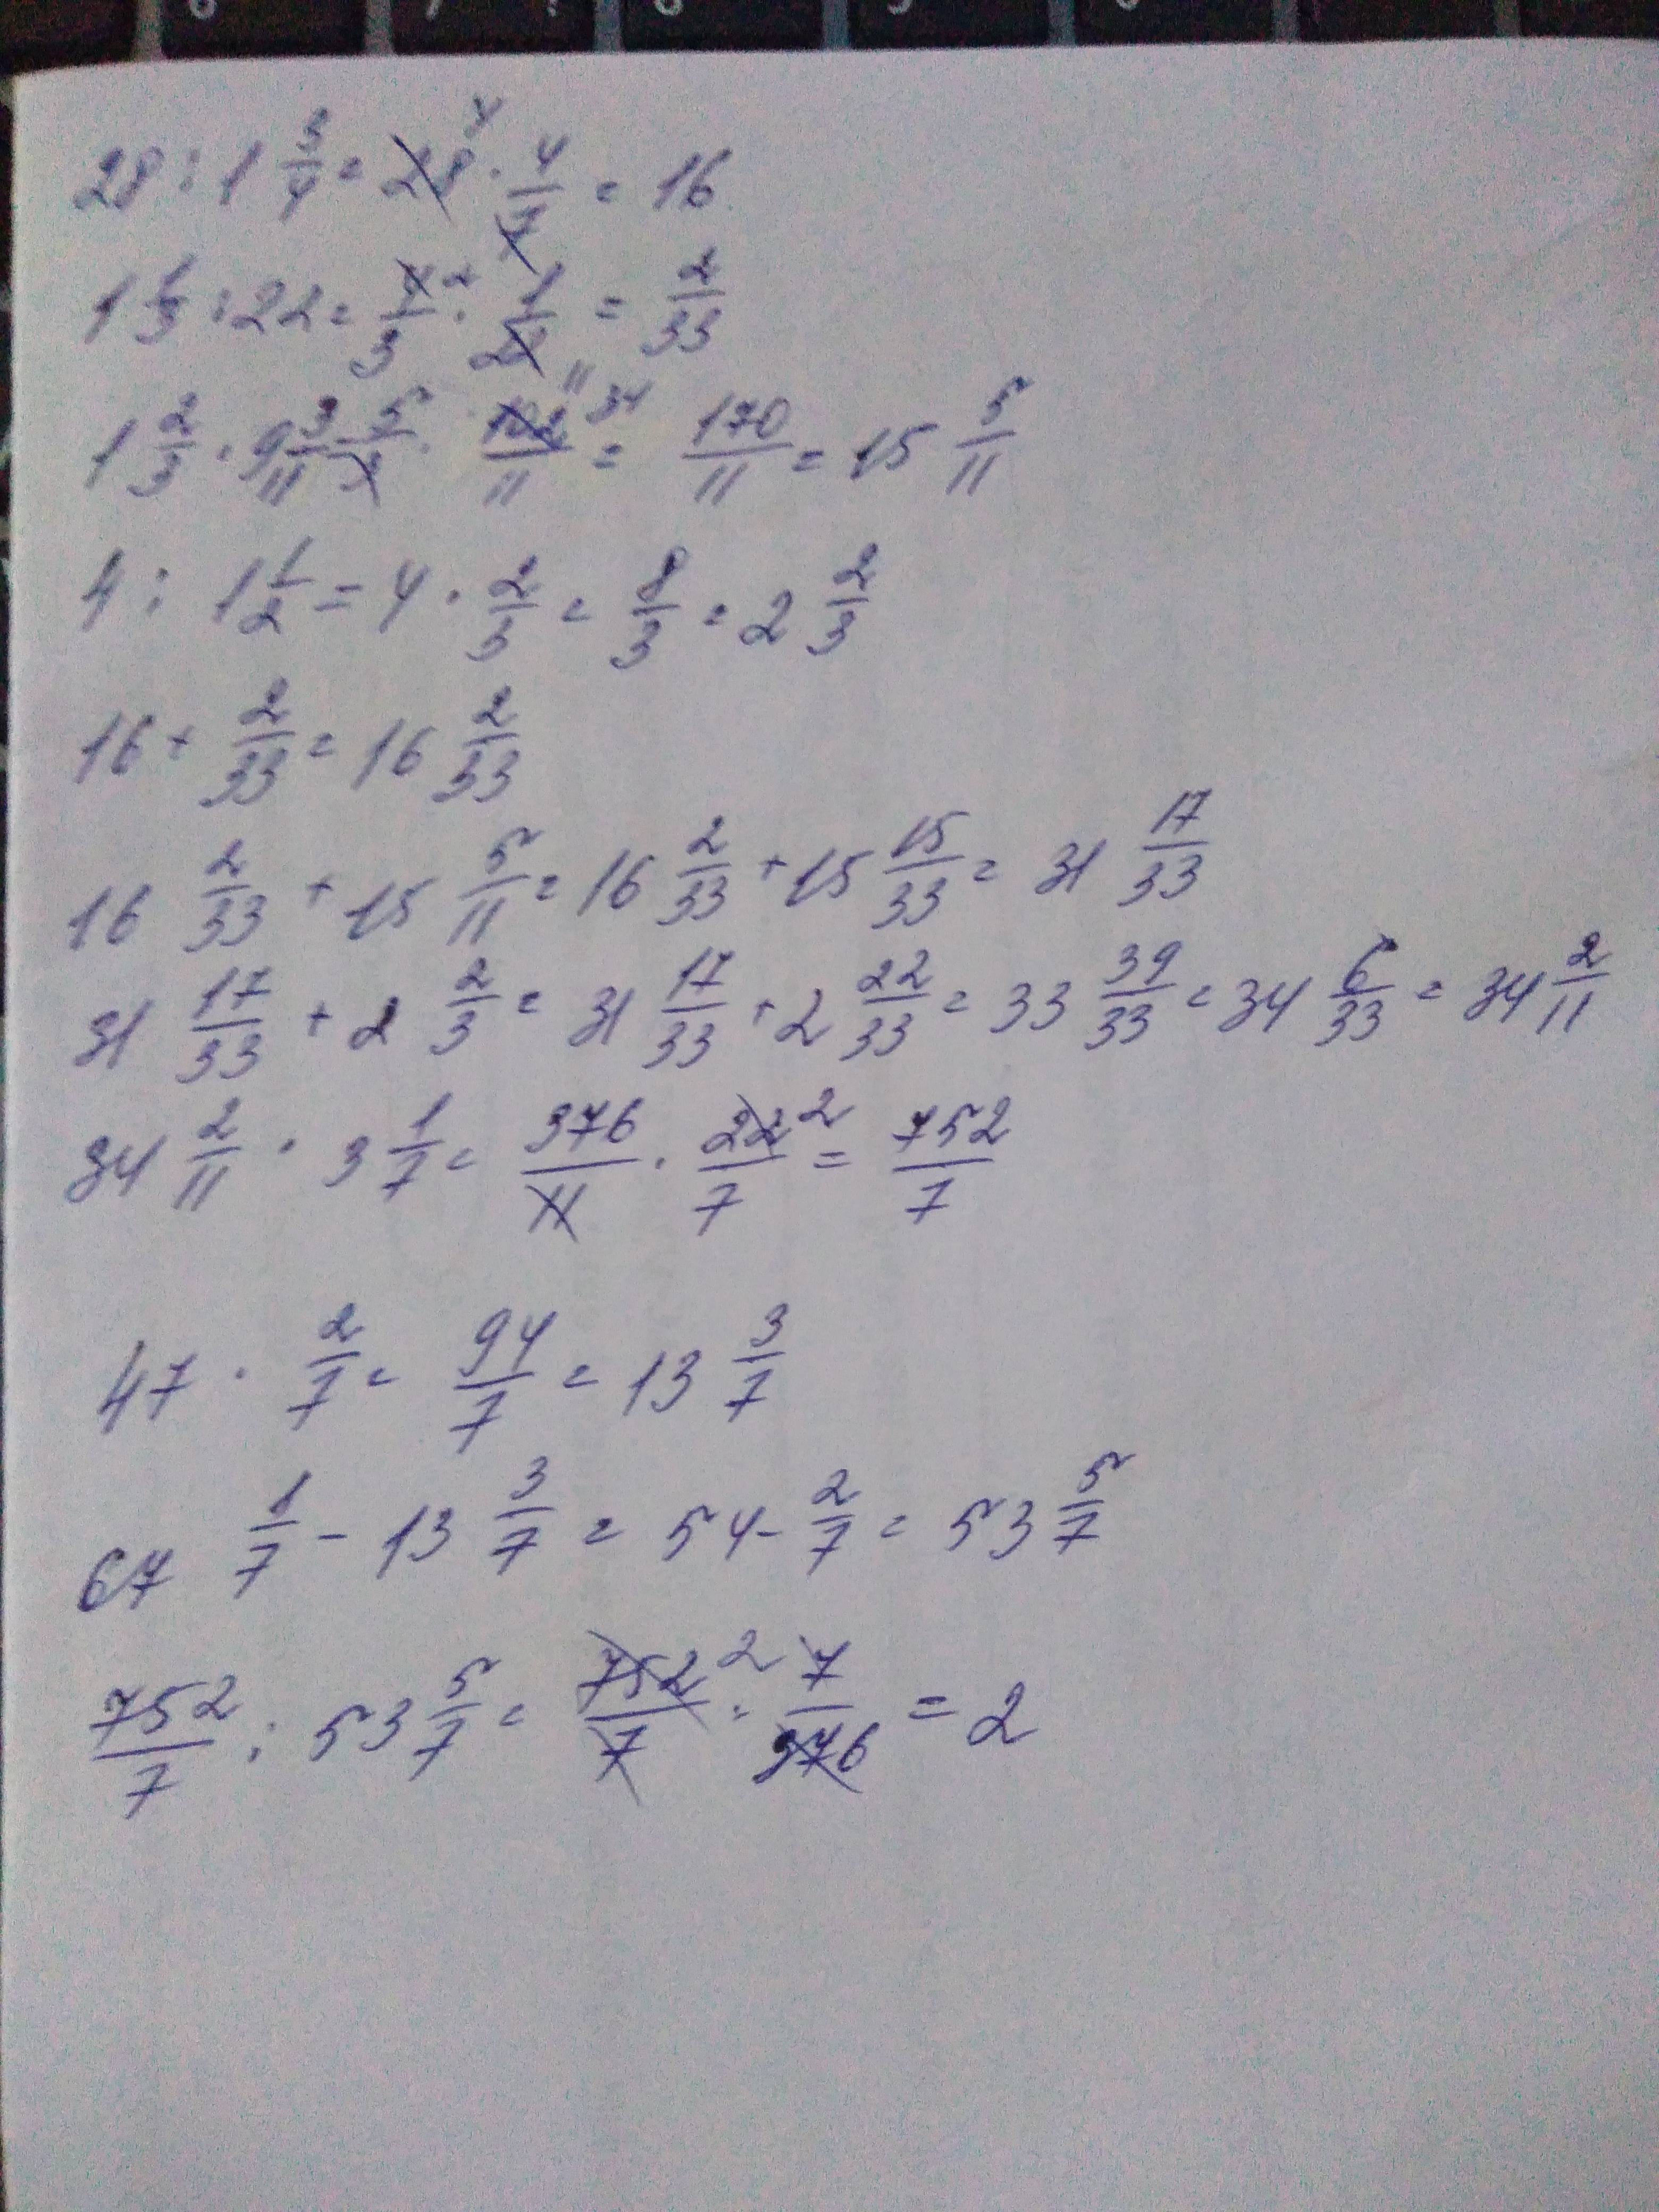 28 : 1 3/4 = 28 4 · 4/7 = 16
1 1/3 : 22 = 4/3 2 · 1/22 11 = 2/33
1 2/3 · 9 3/11 = 5/3 · 102/11 34 = 170/11 = 15 5/11
4 : 1 1/2 = 4 · 2/3 = 8/3 = 2 2/3
16 + 2/33 = 16 2/33
16 2/33 + 15 5/11 = 16 2/33 + 15 15/33 = 31 17/33
31 17/33 + 2 2/3 = 31 17/33 + 2 22/33 = 33 39/33 = 34 6/33 = 34 2/11
34 2/11 · 3 1/7 = 376/11 · 22/7 2 = 752/7
47 · 2/7 = 94/7 = 13 3/7
67 1/7 - 13 3/7 = 54 - 2/7 = 53 5/7
752/7 : 53 5/7 = 752/7 2 · 7/376 = 2